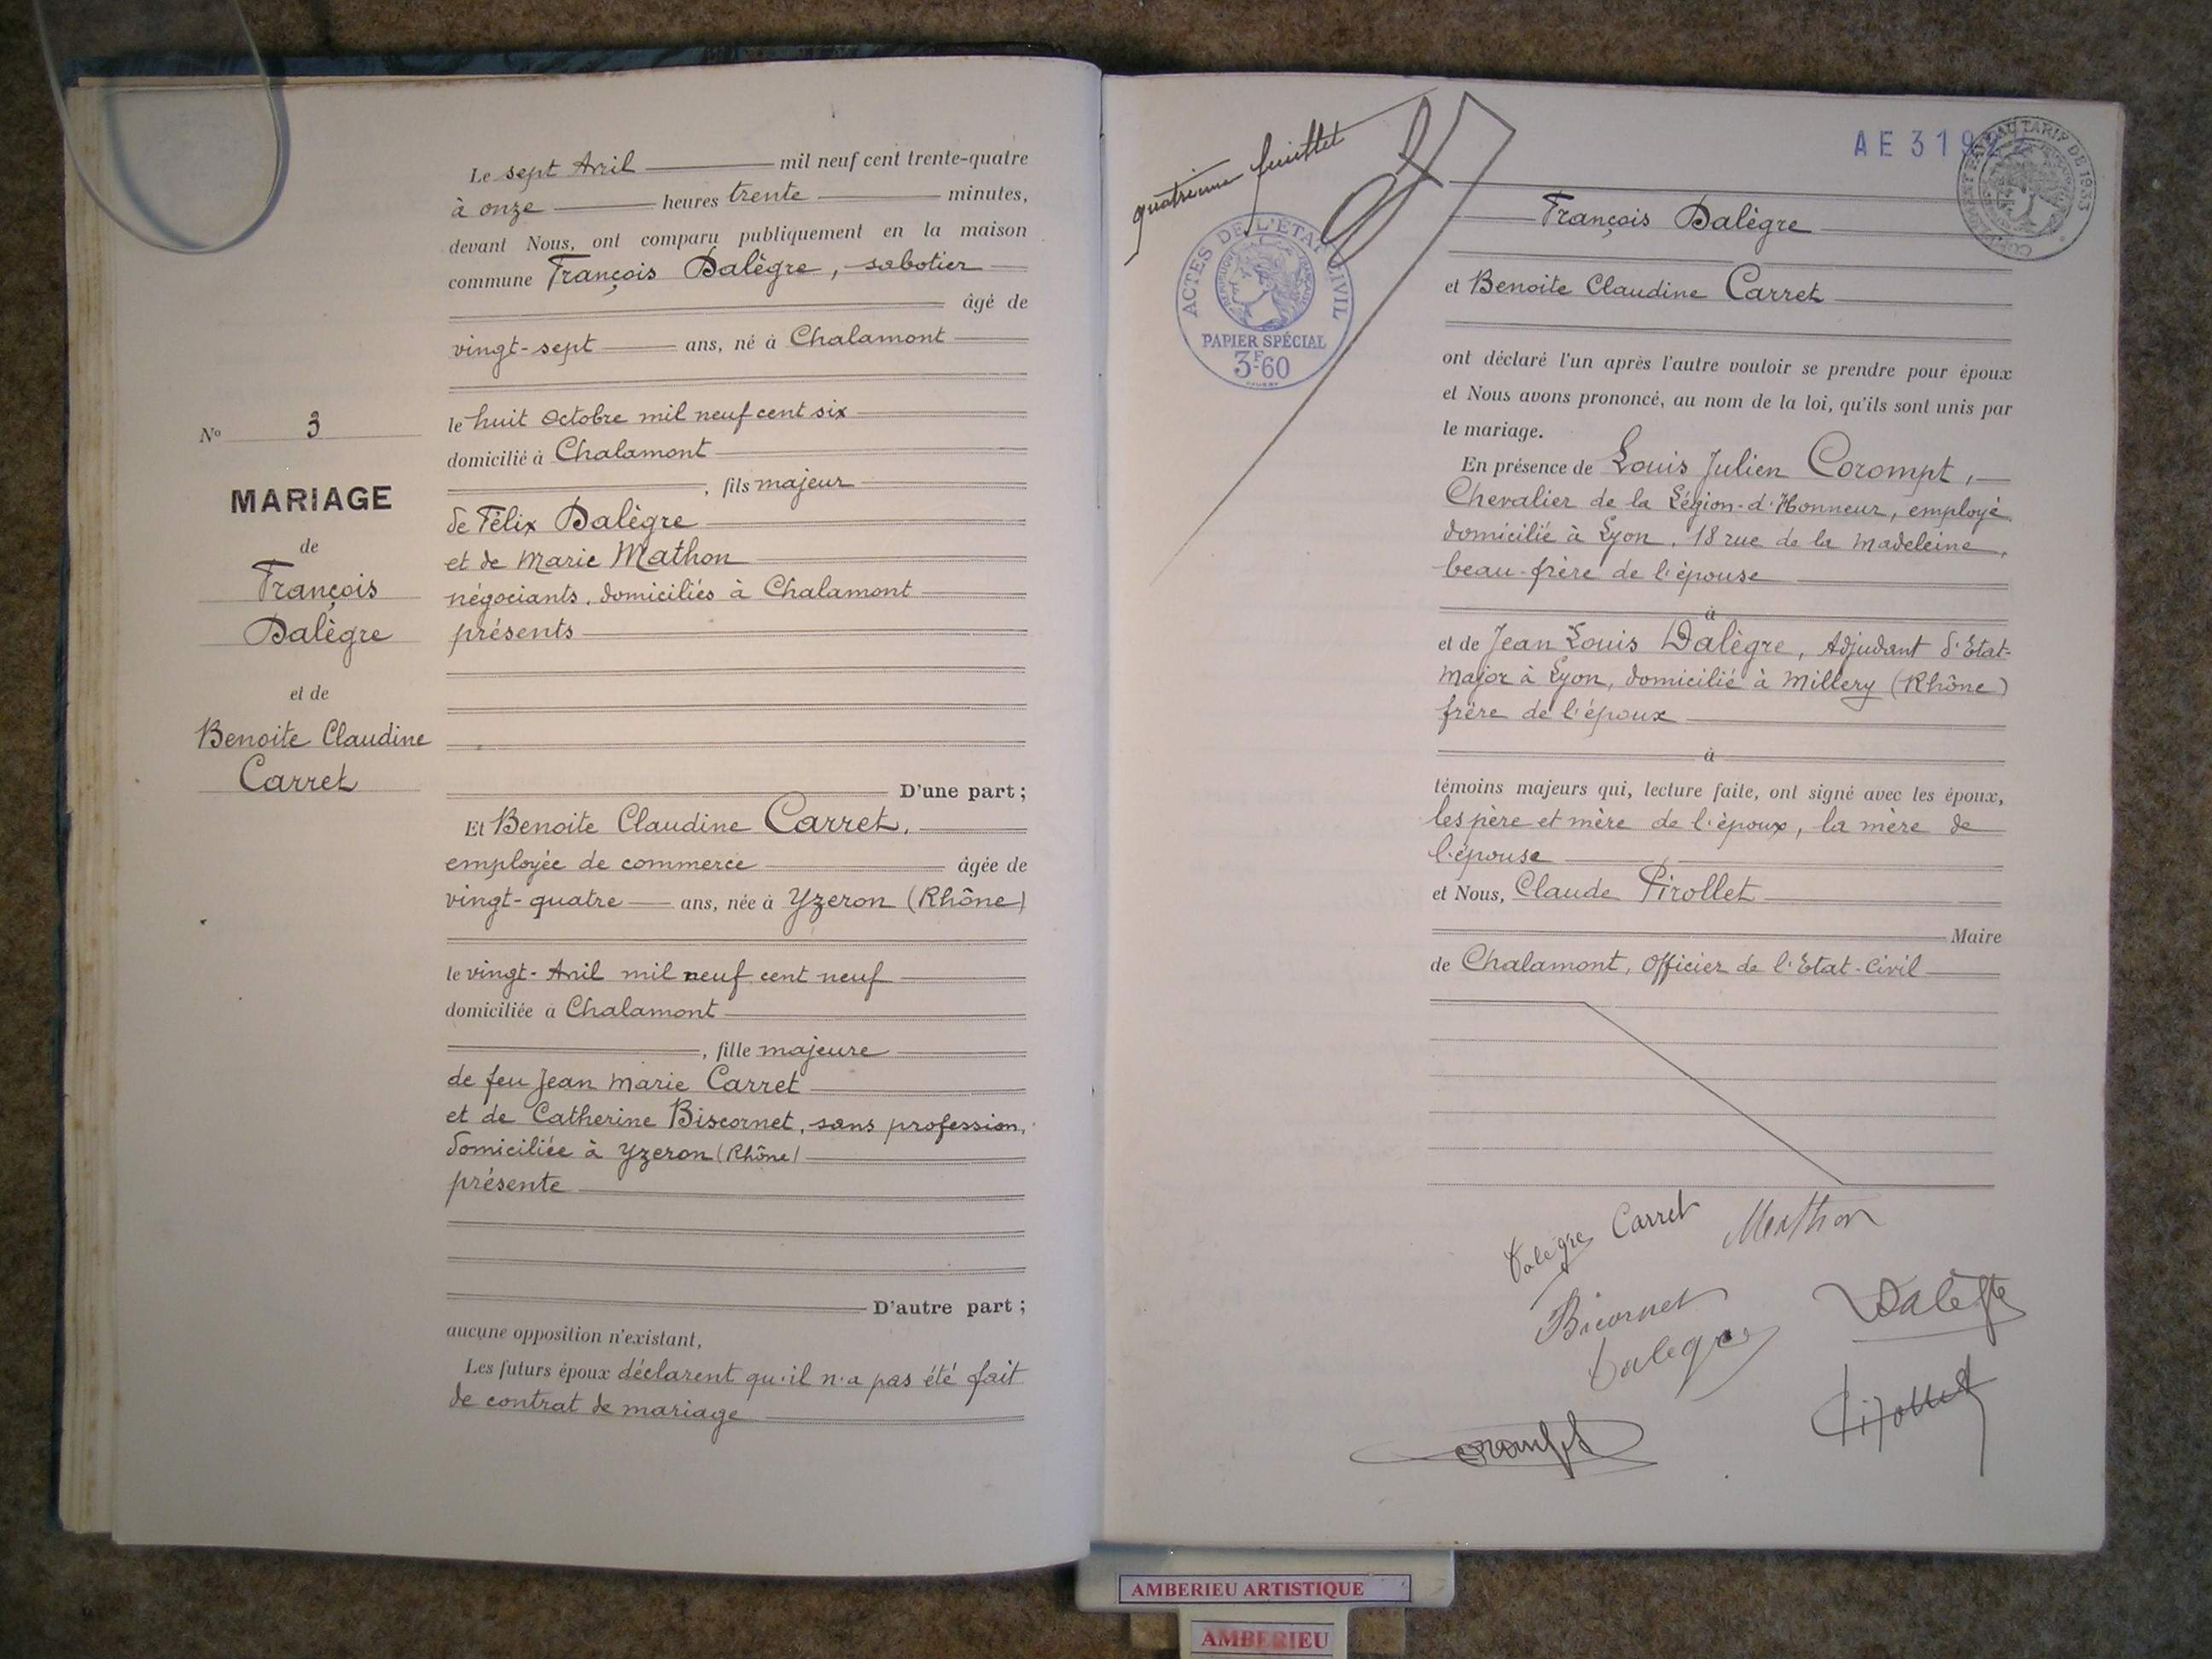 Le sept Avril mil neuf cent trente-quatre
à onze heures trente minutes,
devant Nous, ont comparu publiquement en la maison
commune François Dalègre, sabotier
âgé de
vingt-sept ans, né à Chalamont
le huit Octobre mil neuf cent six
domicilié à Chalamont
, fils majeur
de Félix Dalègre
et de Marie Mathon
négociants, domiciliés à Chalamont
présents
D'une part ;
Et Benoite Claudine Carret,
employée de commerce âgée de
vingt-quatre ans, née à Yzeron (Rhône)
le vingt-Avril mil neuf cent neuf
domiciliée à Chalamont
, fille majeure
de feu Jean Marie Carret
et de Catherine Biscornet, sans profession,
domiciliée à Yzeron (Rhône)
présente
D'autre part ;
aucune opposition n'existant,
Les futurs époux déclarent qu'il n'a pas été fait
de contrat de mariage
No 3
MARIAGE
de
François
Dalègre
et de
Benoite Claudine
Carret
quatrième feuillet
ACTES DE L'ÉTAT CIVIL
RÉPUBLIQUE FRANÇAISE
PAPIER SPÉCIAL
3F60
AE 319
TARIF DE 1933
François Dalègre
et Benoite Claudine Carret
ont déclaré l'un après l'autre vouloir se prendre pour époux
et Nous avons prononcé, au nom de la loi, qu'ils sont unis par
le mariage.
En présence de Louis Julien Corompt,
Chevalier de la Légion-d'Honneur, employé
domicilié à Lyon, 18 rue de la Madeleine,
beau-frère de l'épouse
à
et de Jean Louis Dalègre, Adjudant d'Etat-
Major à Lyon, domicilié à Millery (Rhône)
frère de l'époux
à
témoins majeurs qui, lecture faite, ont signé avec les époux,
les père et mère de l'époux, la mère de
l'épouse
et Nous, Claude Pirollet
Maire
de Chalamont, Officier de l'Etat-Civil
Dalègre Carret Mathon
Bicornet Dalègre
Dalègre
Pirollet
Corompt
AMBERIEU ARTISTIQUE
AMBERIEU